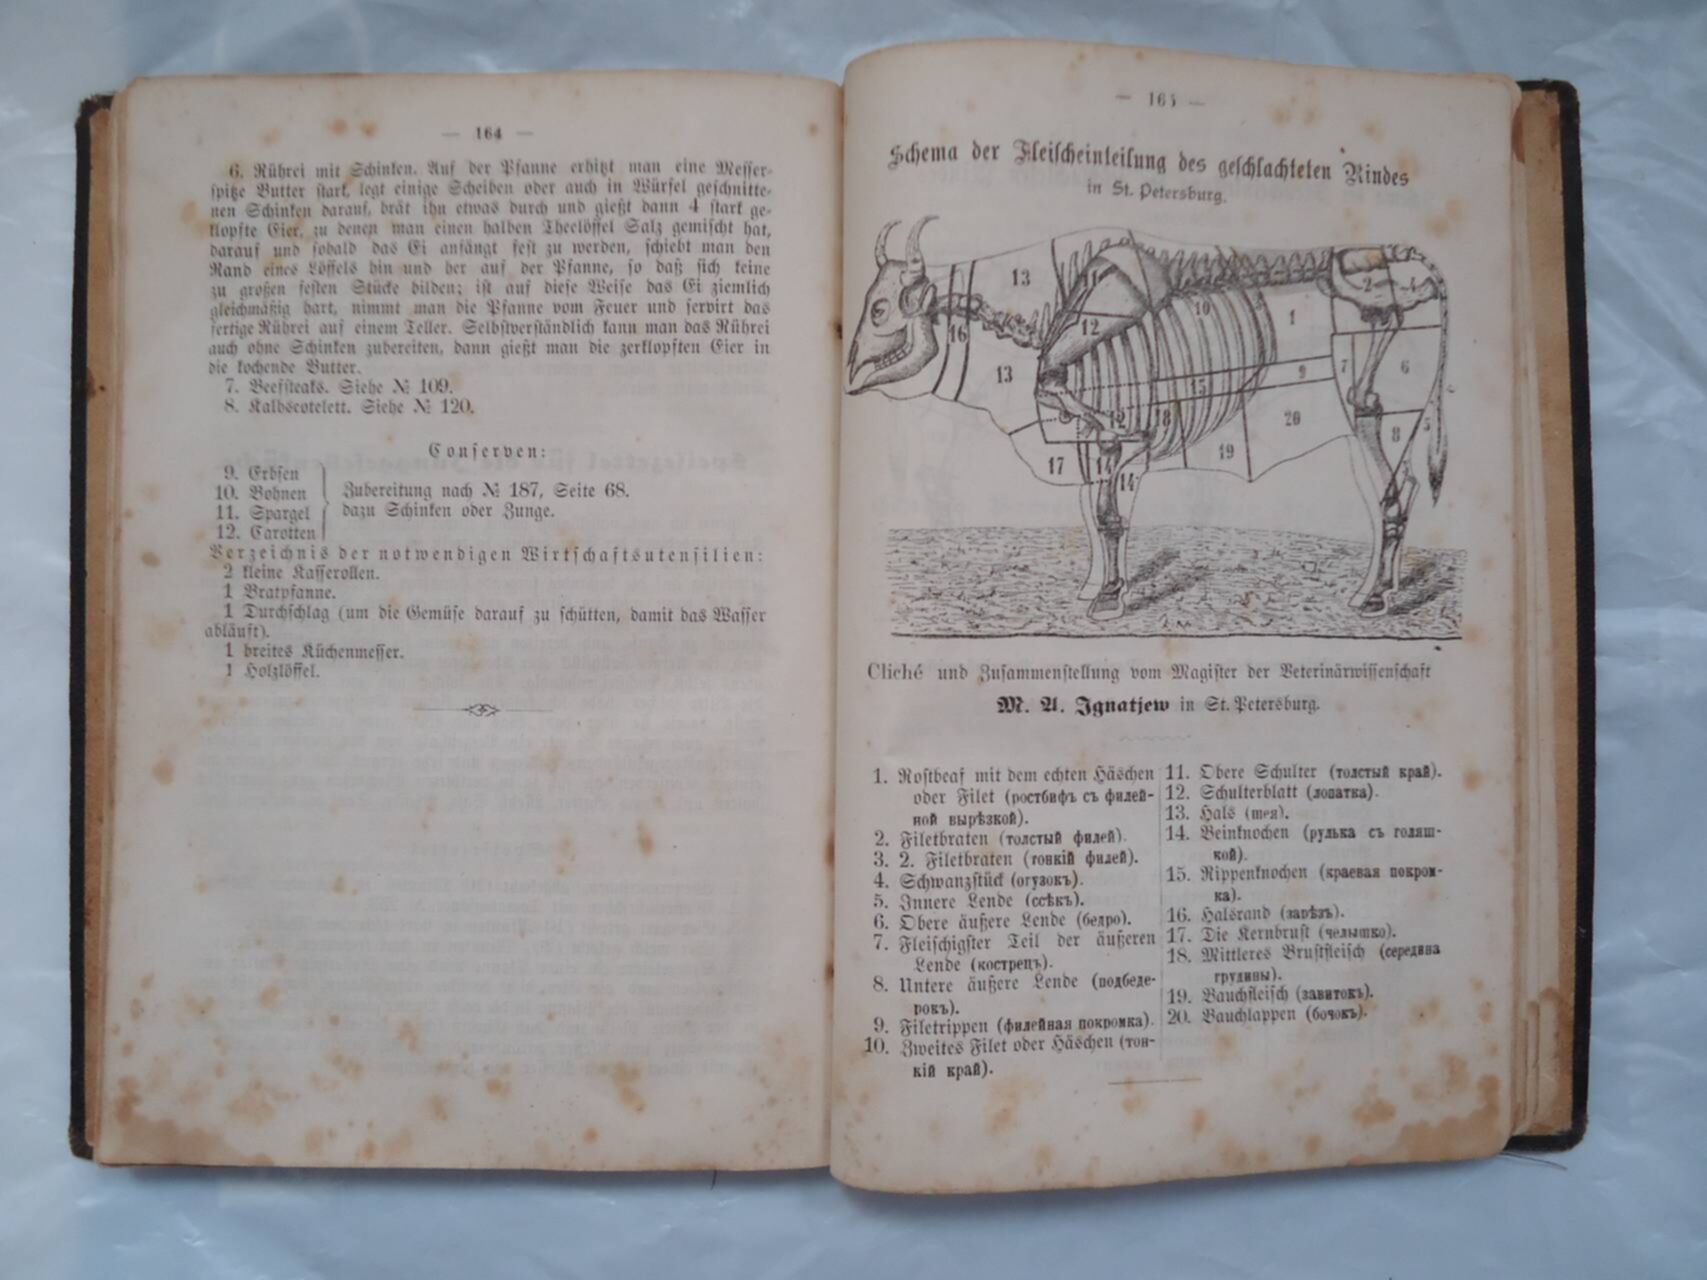 — 164 —
6. Rührei mit Schinken. Auf der Pfanne erhitzt man eine Messer-
spitze Butter stark, legt einige Scheiben oder auch in Würfel geschnitte-
nen Schinken darauf, brät ihn etwas durch und gießt dann 4 stark ge-
klopfte Eier, zu denen man einen halben Theelöffel Salz gemischt hat,
darauf und sobald das Ei anfängt fest zu werden, schiebt man den
Rand eines Löffels hin und her auf der Pfanne, so daß sich keine
zu großen festen Stücke bilden; ist auf diese Weise das Ei ziemlich
gleichmäßig hart, nimmt man die Pfanne vom Feuer und servirt das
fertige Rührei auf einem Teller. Selbstverständlich kann man das Rührei
auch ohne Schinken zubereiten, dann gießt man die zerklopften Eier in
die kochende Butter.
7. Beefsteaks. Siehe № 109.
8. Kalbscotelett. Siehe № 120.
Conserven:
9. Erbsen
10. Bohnen
11. Spargel
12. Carotten
Zubereitung nach № 187, Seite 68.
dazu Schinken oder Zunge.
Verzeichnis der notwendigen Wirtschaftsutensilien:
2 kleine Kasserollen.
1 Bratpfanne.
1 Durchschlag (um die Gemüse darauf zu schütten, damit das Wasser
abläuft).
1 breites Küchenmesser.
1 Holzlöffel.
— 165 —
Schema der Fleischeinteilung des geschlachteten Rindes
in St. Petersburg.
13
11
12
16
13
10
1
2
4
15
9
7
6
12
18
20
8
5
19
17
14
14
Cliché und Zusammenstellung vom Magister der Veterinärwissenschaft
M. A. Ignatjew in St. Petersburg.
1. Rostbeaf mit dem echten Häschen
oder Filet (ростбифъ съ филей-
ной вырѣзкой).
2. Filetbraten (толстый филей).
3. 2. Filetbraten (тонкій филей).
4. Schwanzstück (огузокъ).
5. Innere Lende (ссѣкъ).
6. Obere äußere Lende (бедро).
7. Fleischigster Teil der äußeren
Lende (кострецъ).
8. Untere äußere Lende (подбеде-
рокъ).
9. Filetrippen (филейная покромка).
10. Zweites Filet oder Häschen (тон-
кій край).
11. Obere Schulter (толстый край).
12. Schulterblatt (лопатка).
13. Hals (шея).
14. Beinknochen (рулька съ голяш-
кой).
15. Rippenknochen (краевая покром-
ка).
16. Halsrand (зарѣзъ).
17. Die Kernbrust (челышко).
18. Mittleres Brustfleisch (середина
грудины).
19. Bauchfleisch (завитокъ).
20. Bauchlappen (бочокъ).